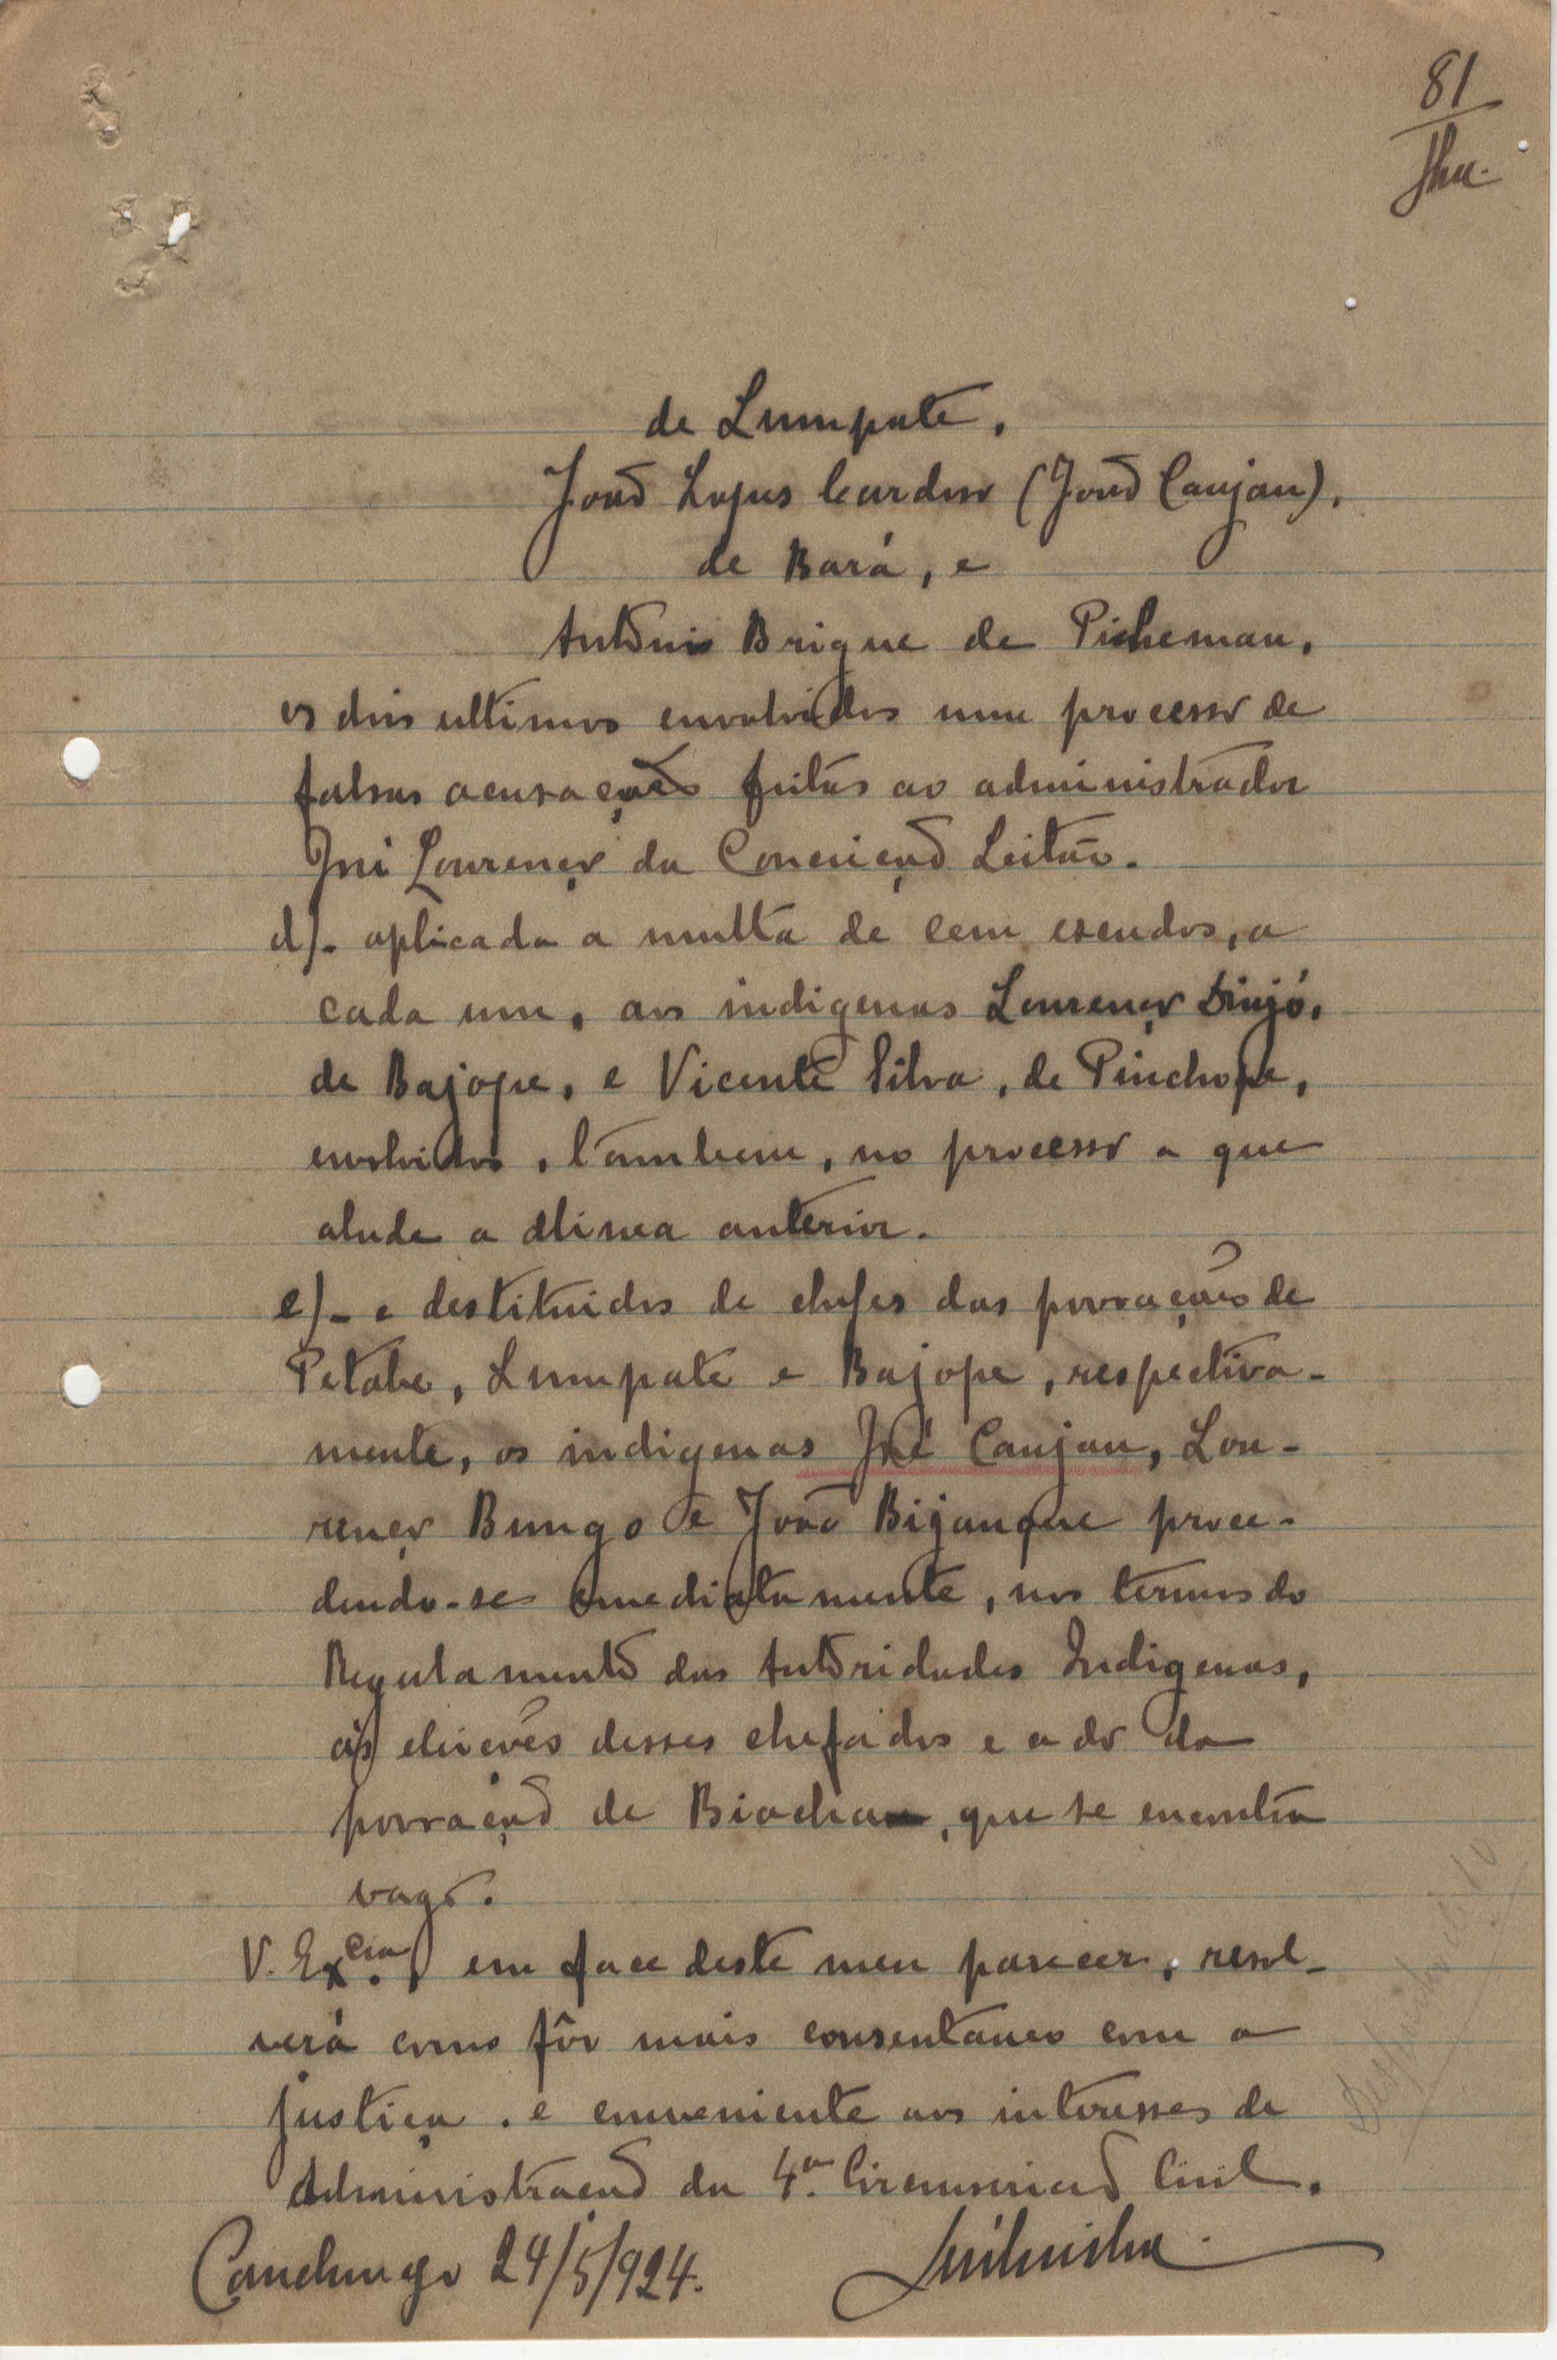 81
de Lumpate.
João Lopes Cardoso (João Caujan).
de Bará, e
António Brique de Picheman.
os dois ultimos envolvidos num processo de
falsas acusações feitas ao administrador
José Lourenço da Conceição Leitão.
d)- aplicada a multa de cem escudos, a
cada um, aos indigenas Lourenço Dinjó,
de Bajope, e Vicente Silva, de Pinchope,
envolvidos, tambem, no processo a que
alude a alinea anterior.
e)- e destituidos de chefes das povoações de
Petabe, Lumpate e Bajope, respectiva-
mente, os indigenas José Caujan, Lou-
renço Bungo e João Bijanque proce-
dendo-se imediatamente, nos termos do
Regulamento das Autoridades Indigenas,
ás eleicões desses chefados e a do da
povoação de Biacha, que se encontra
vago.
V. Ex.cia, em face deste meu parecer, resol-
verá como fôr mais consentaneo com a
justiça. e conveniente aos interesses da
Administração da 4.a Circunscrição Civil.
Canchungo 24/5/924.